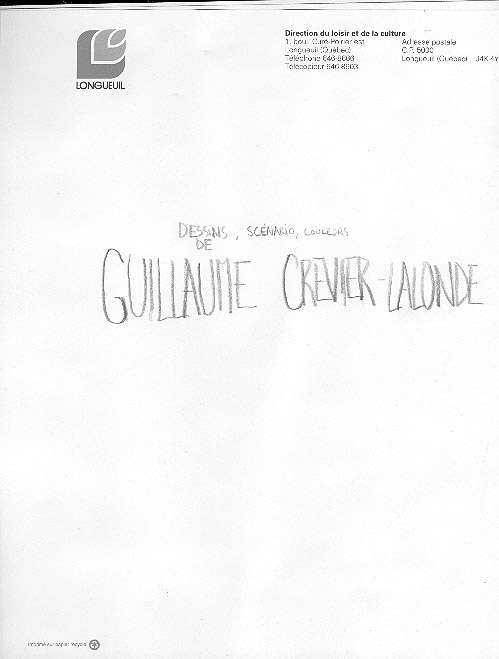 LONGUEUIL
Direction du loisir et de la culture
1, boul. Curé-Poirier est
Longueuil (Québec)
Téléphone 646-8666
Télécopieur 646-8903
Adresse postale
C.P. 5000
Longueuil (Québec) J4K 4Y
DESSINS, SCÉNARIO, COULEURS
DE
GUILLAUME CREVIER-LALONDE
Imprimé sur papier recyclé